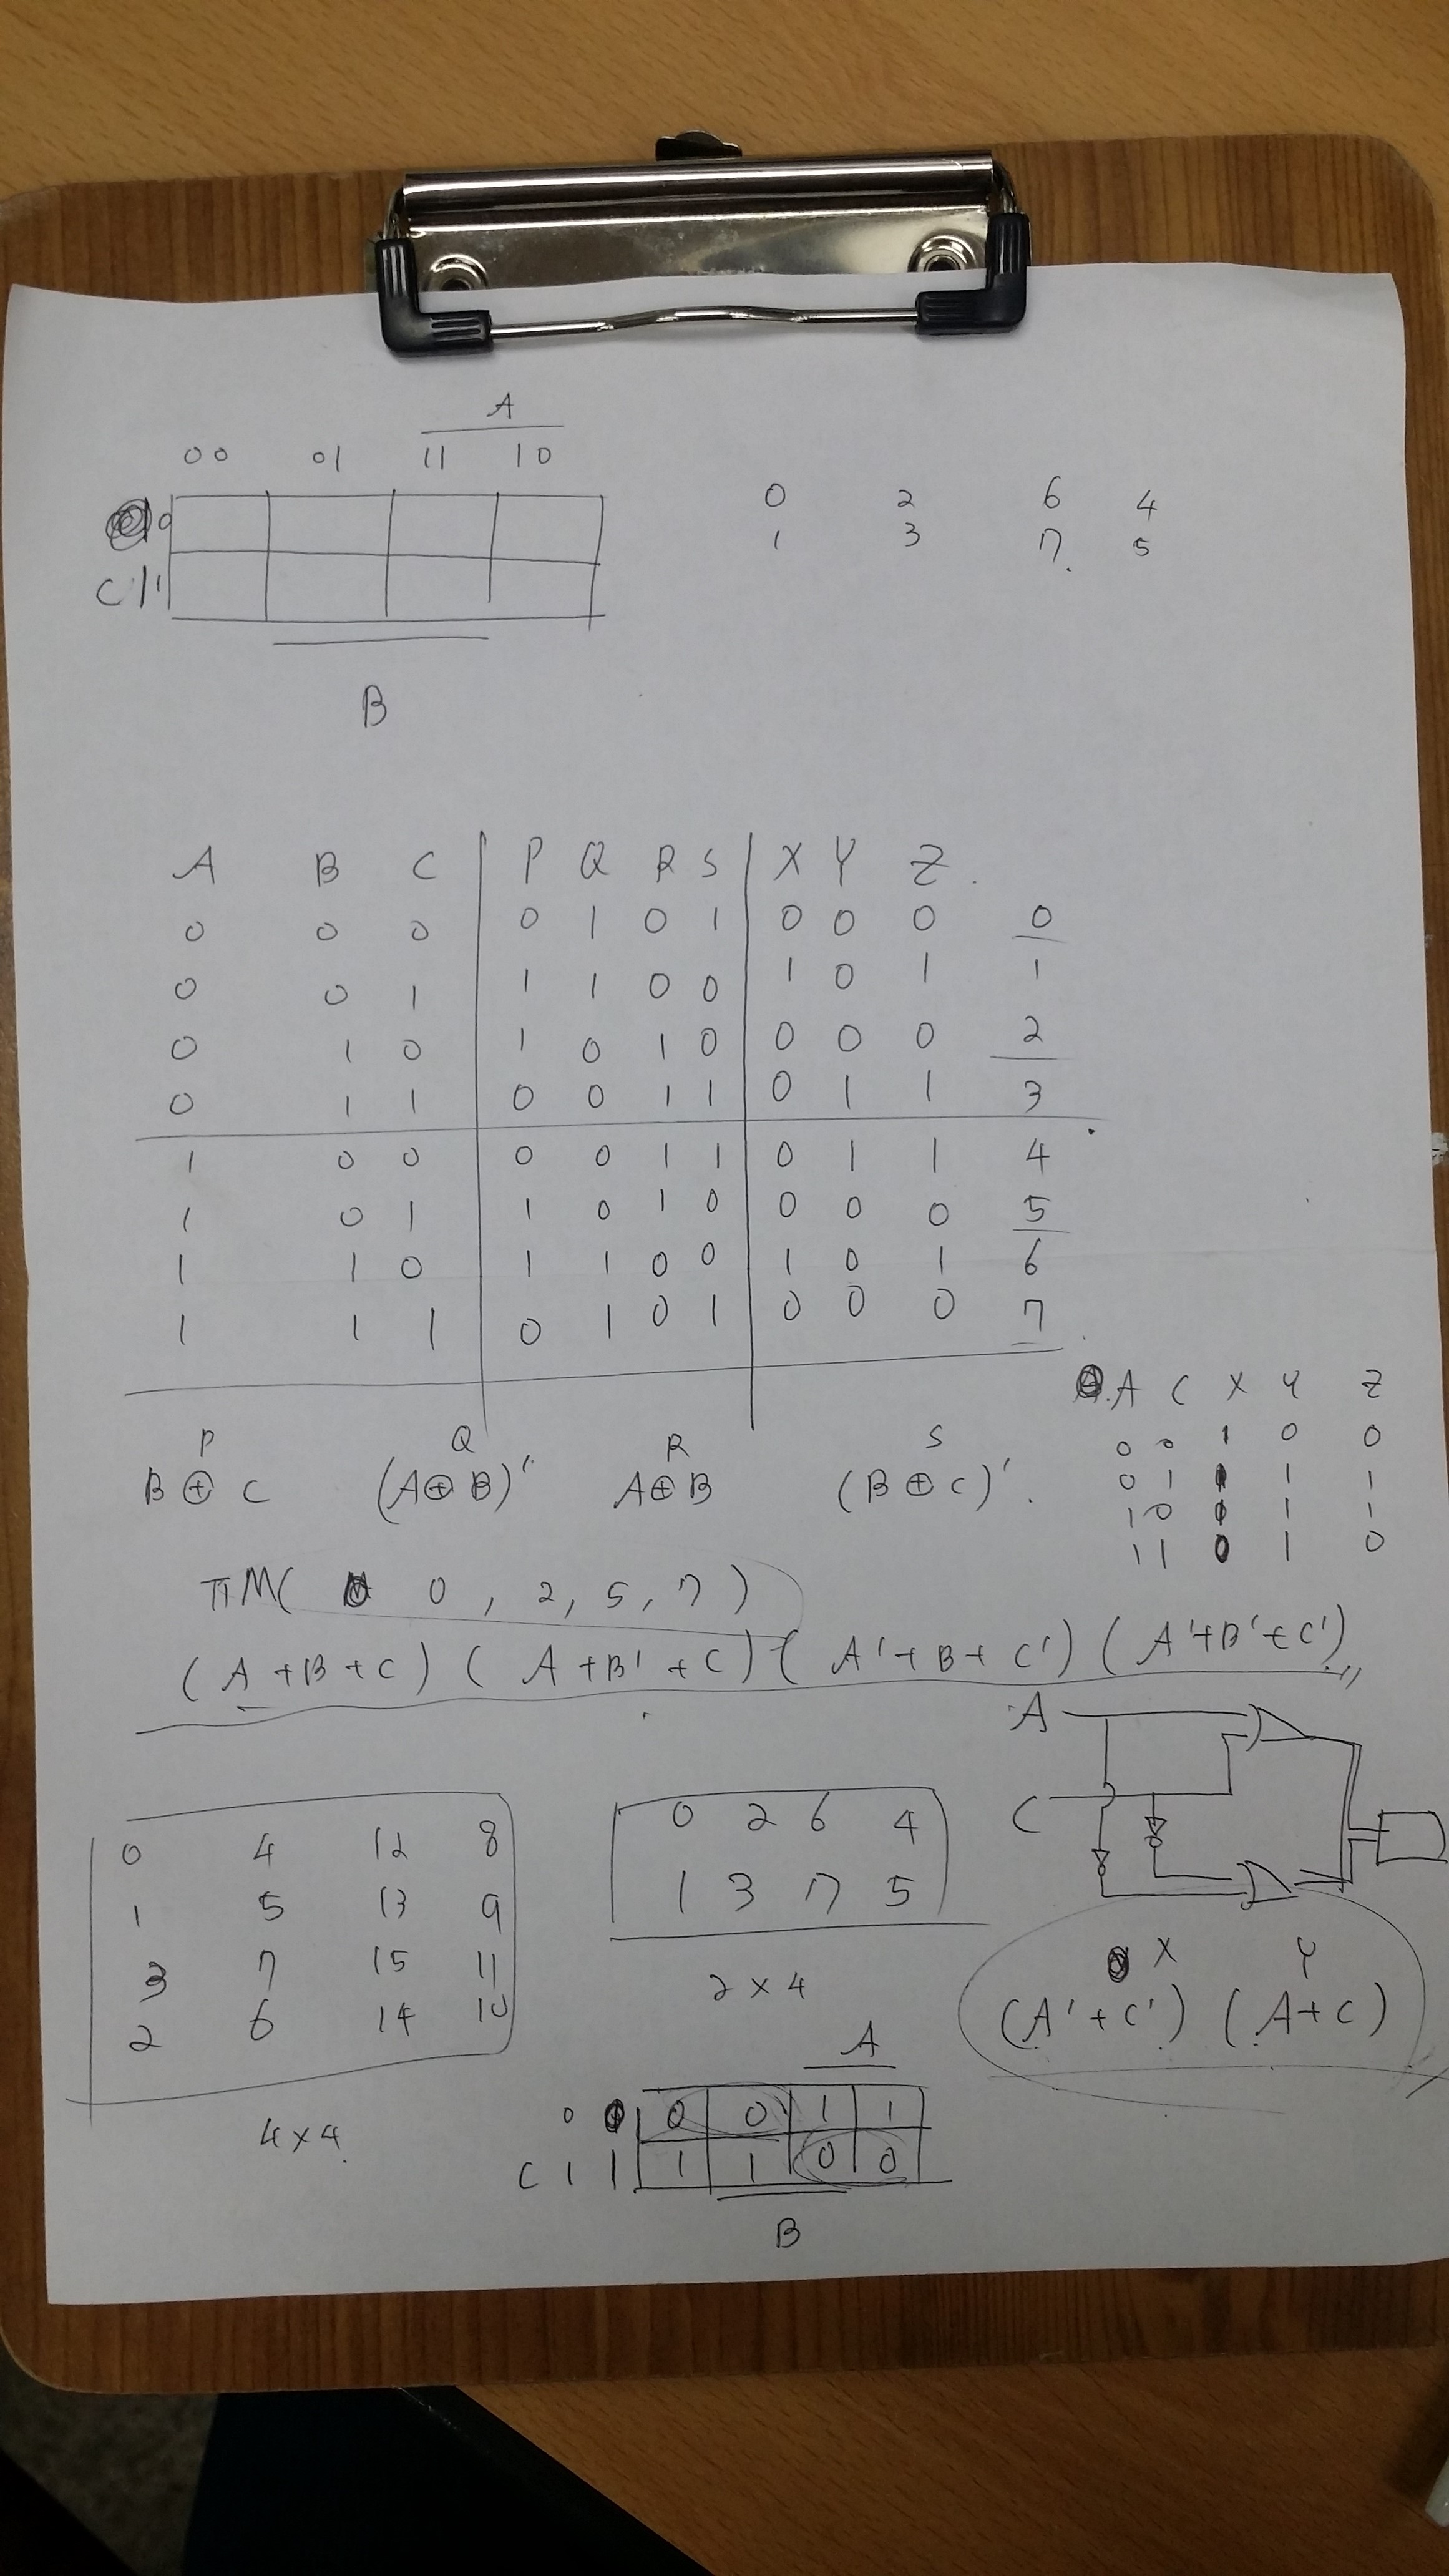 A
00 01 11 10
0
C 1
B
0 2 6 4
1 3 7 5
A B C P Q R S X Y Z
0 0 0 0 1 0 1 0 0 0 0
0 0 1 1 1 0 0 1 0 1 1
0 1 0 1 0 1 0 0 0 0 2
0 1 1 0 0 1 1 0 1 1 3
1 0 0 0 0 1 1 0 1 1 4
1 0 1 1 0 1 0 0 0 0 5
1 1 0 1 1 0 0 1 0 1 6
1 1 1 0 1 0 1 0 0 0 7
P Q R S
B ⊕ C (A⊕B)' A⊕B (B⊕C)'.
A C X Y Z
0 0 1 0 0
0 1 1 1
1 0 1 1
1 1 0 1 0
πM( 0, 2, 5, 7)
(A+B+C) (A+B'+C) (A'+B+C') (A'+B'+C')
A
C
X Y
(A'+C') (A+C)
0 4 12 8
1 5 13 9
3 7 15 11
2 6 14 10
4×4
0 2 6 4
1 3 7 5
2×4
A
0 0 0 1 1
C 1 1 1 1 0 0
B